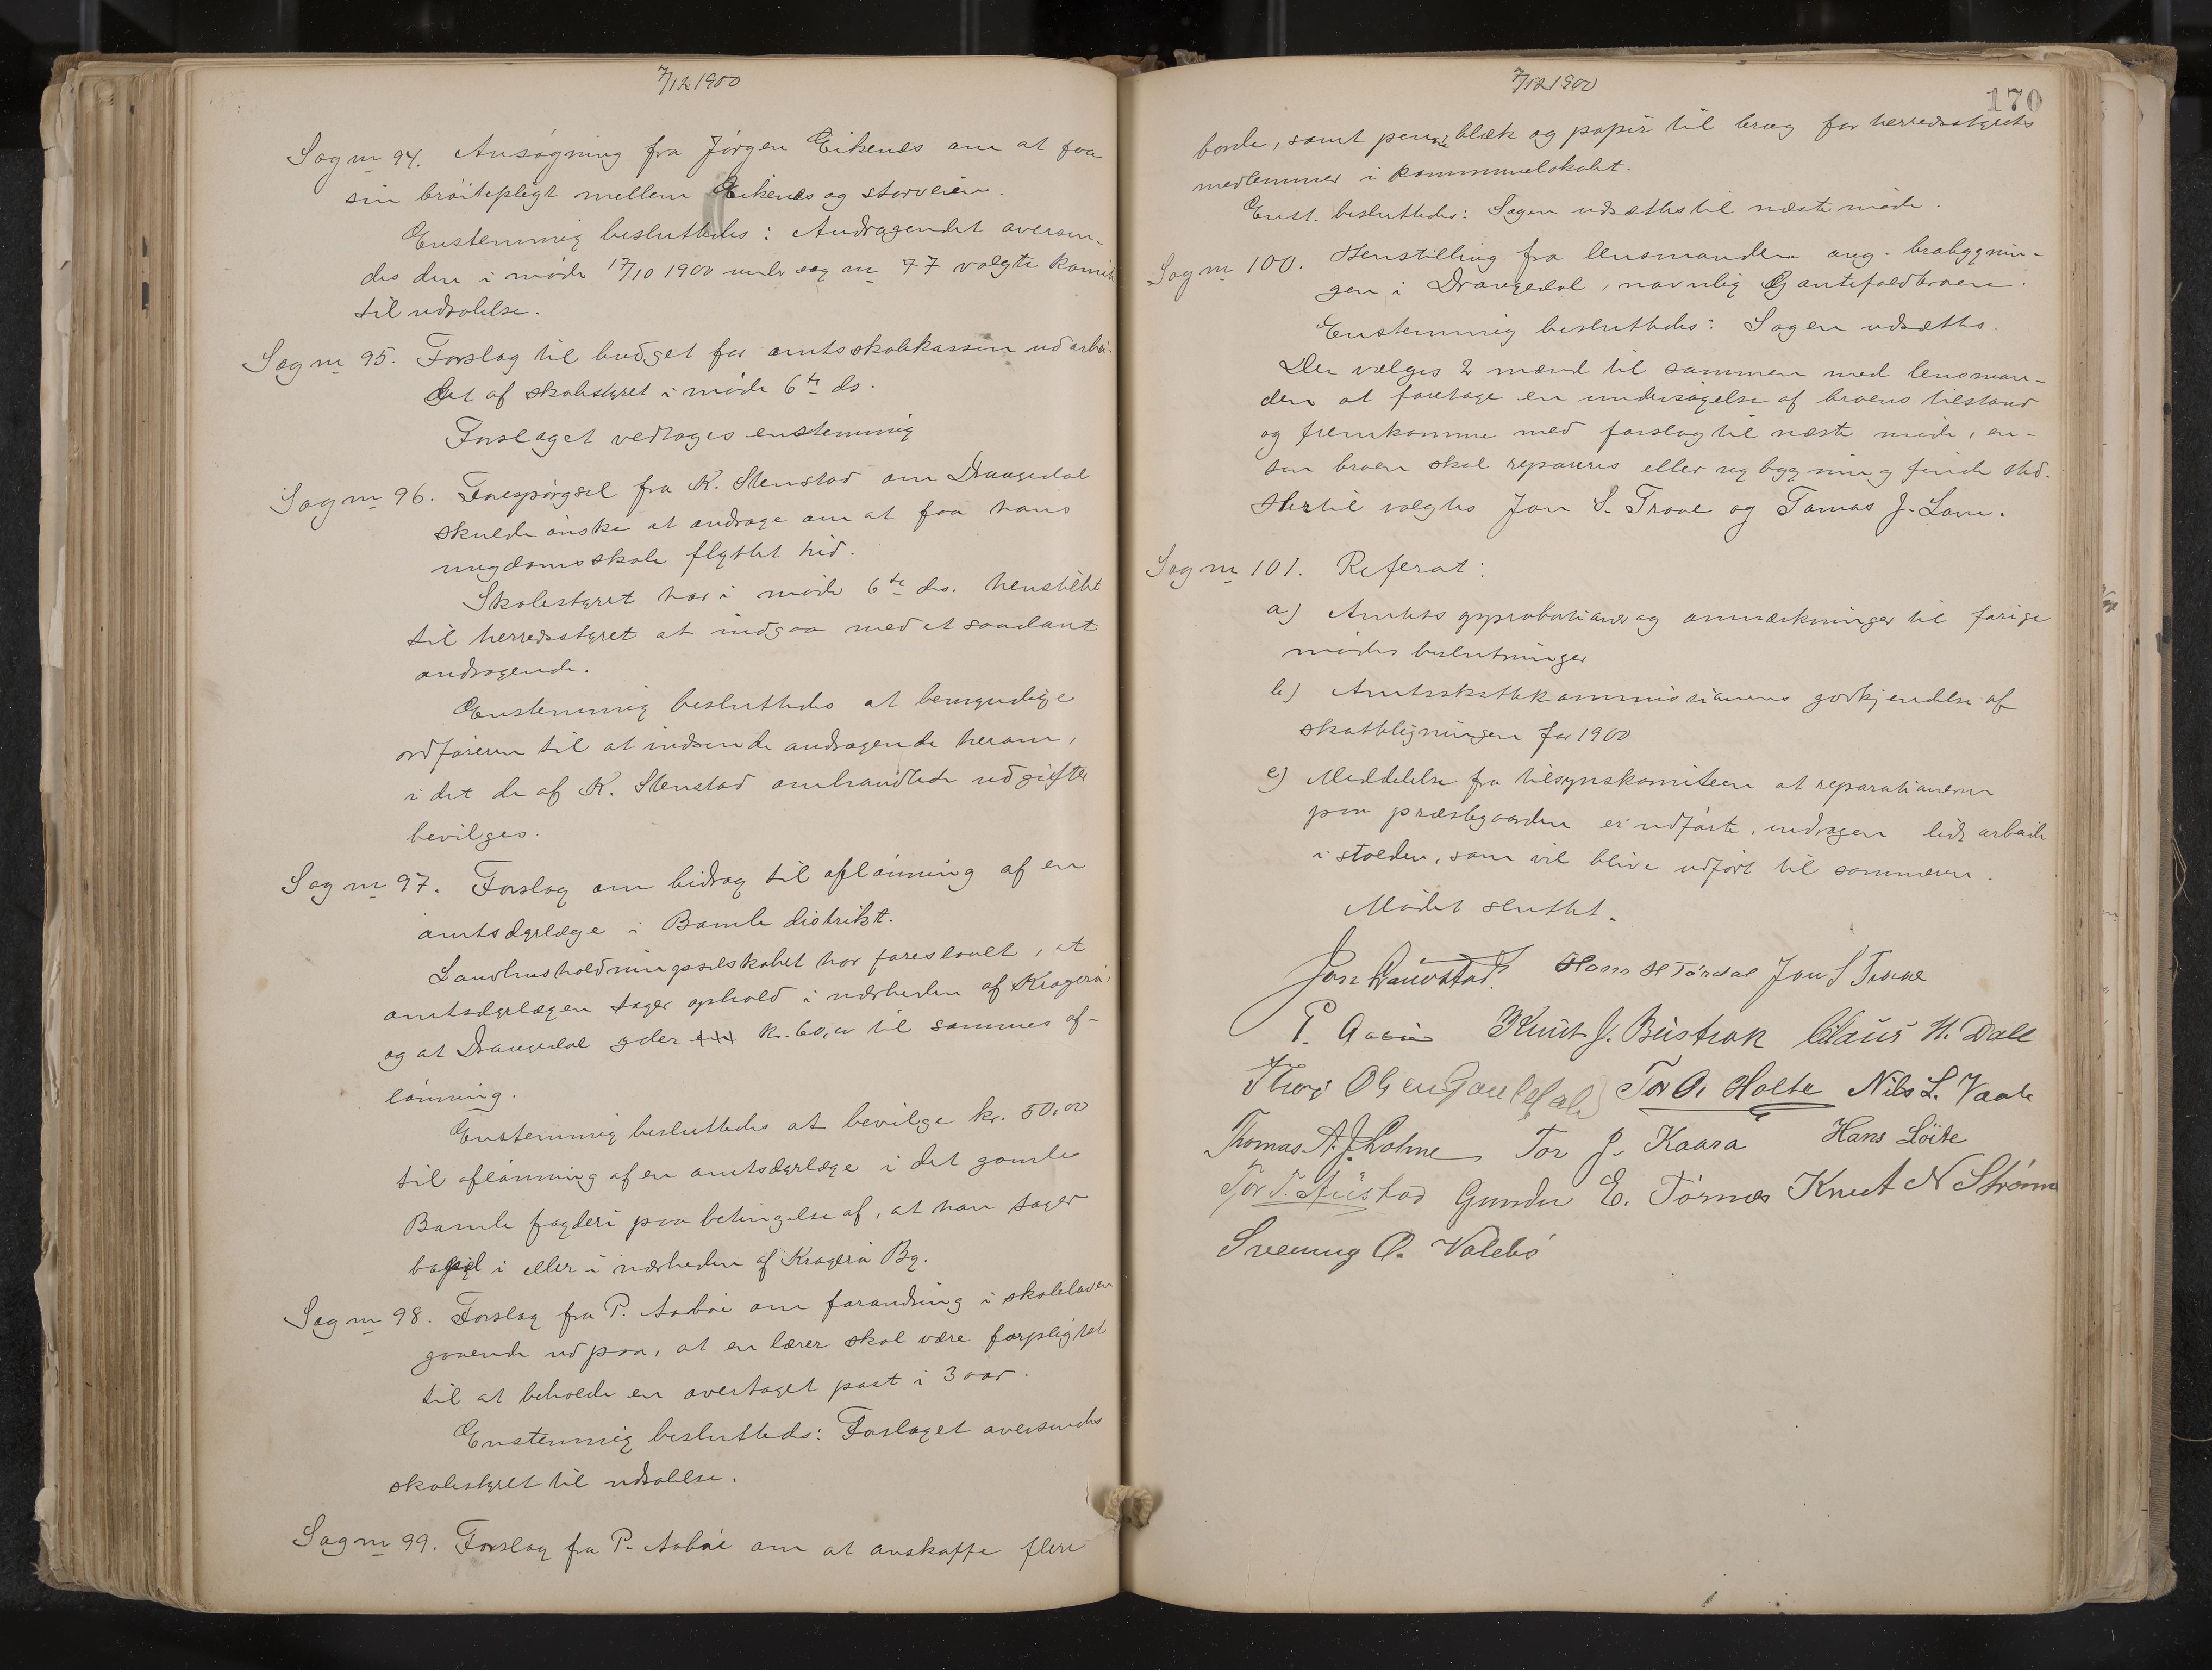 7/12 1900
Sag nr 94. Ansøgning fra Jørgen Eikenes om at faa
sin brøitepligt mellem Eikenes og storveien.
Enstemmig besluttedes: Andragendet oversen-
des den i møde 17/10 1900 under sag nr 77 valgte komite
til udtalelse.
Sag nr 95. Forslag til budget for amtsskolekassen udarbei-
det af skolestyret i møde 6te ds.
Forslaget vedtoges enstemmig
Sag nr 96. Forespørgsel fra K. Stenstad om Drangedal
skulde ønske at andrage om at faa hans
ungdomsskole flyttet hid.
Skolestyret har i møde 6te ds. henstillet
til herredsstyret at indgaa med et saadant
andragende.
Enstemmig besluttedes at bemyndige
ordføreren til at indsende andragende herom,
idet de af K. Stenstad omhandlede udgifter
bevilges.
Sag nr 97. Forslag om bidrag til aflønning af en
amtsdyrlæge i Bamle distrikt.
Landhusholdningsselskabet har foreslaaet, at
amtsdyrlægen tager ophold i nærheden af Kragerø,
og at Drangedal yder kr. 60,00 til sammes af-
lønning.
Enstemmig besluttedes at bevilge kr. 50,00
til aflønning af en amtsdyrlæge i det gamle
Bamle fogderi paa betingelse af, at han tager
bopæl i eller i nærheden af Kragerø By.
Sag nr 98. Forslag fra P. Aabøe om forandring i skoleloven
gaaende ud paa, at en lærer skal være forpligtet
til at beholde en overtaget post i 3 aar.
Enstemmig besluttedes: Forslaget oversendes
skolestyret til udtalelse.
Sag nr 99. Forslag fra P. Aabøe om at anskaffe flere
7/12 1900
170
borde, samt penne, blæk og papir til brug for herredsstyrets
medlemmer i kommunelokalet.
Enst. besluttedes: Sagen udsættes til næste møde.
Sag nr 100. Henstilling fra lensmanden ang. brobygnin-
gen i Drangedal, navnlig Gautefaldbroen.
Enstemmig besluttedes: Sagen udsættes.
Der vælges 2 mænd til sammen med lensman-
den at foretage en undersøgelse af broens tilstand
og fremkomme med forslag til næste møde, en-
ten broen skal repareres eller nybygning finde sted.
Hertil valgtes Jon S. Traae og Tomas J. Lone.
Sag nr 101. Referat:
a) Amtets approbationer og anmærkninger til forrige
mødes beslutninger
b) Amtsskattekommissionens godkjendelse af
skatteligningen for 1900
c) Meddelelse fra tilsynskomiteen at reparationerne
paa præstegaarden er udførte, undtagen lidt arbeide
i stalden, som vil blive udført til sommeren.
Mødet sluttet.
Hans H Tørdal Jon S Traae
P. Knut J. Bustrak Claus H. Dale
Olsen Gautefald Tor O. Holte Nils L. Vaale
Thomas A. J. Lohne Tor J. Kaasa Hans Löite
Tor T. Austad Gunder E. Tørnes Knut N Strømme
Svenung O. Valebø